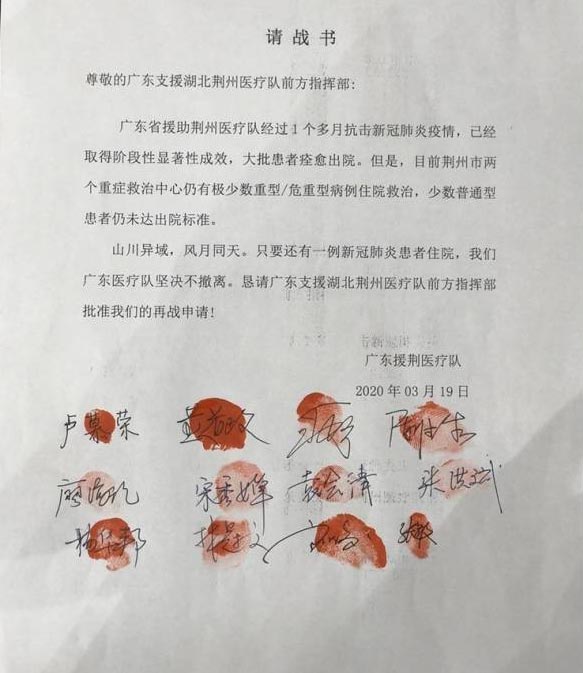 请战书
尊敬的广东支援湖北荆州医疗队前方指挥部:
广东省援助荆州医疗队经过1个多月抗击新冠肺炎疫情，已经
取得阶段性显著性成效，大批患者痊愈出院。但是，目前荆州市两
个重症救治中心仍有极少数重型/危重型病例住院救治，少数普通型
患者仍未达出院标准。
山川异域，风月同天。只要还有一例新冠肺炎患者住院，我们
广东医疗队坚决不撤离。恳请广东支援湖北荆州医疗队前方指挥部
批准我们的再战申请!
广东援荆医疗队
2020年03月19日
卢慕荣
宋秀婵 袁会清 张洪斌
杨华邦